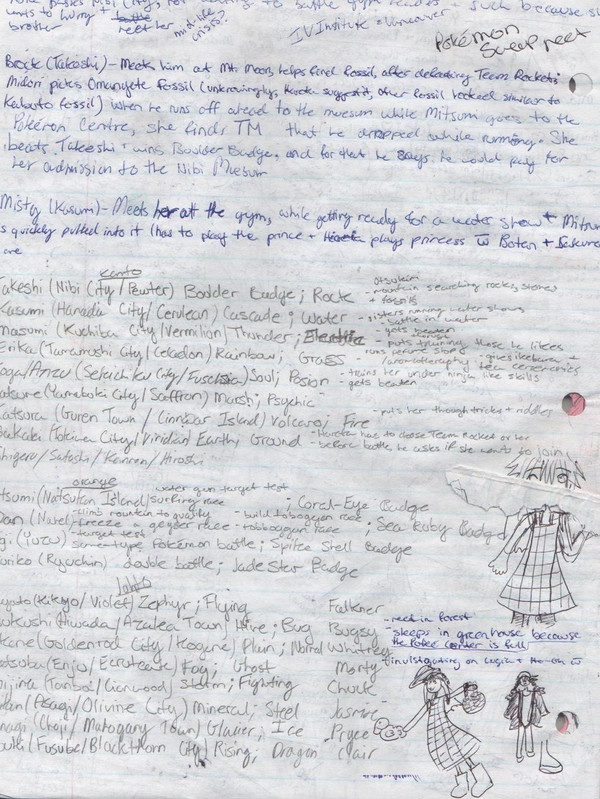 wants to hurry + battle
brother meet her mid-life crisis?
Pokémon
Sweep neet
Brock (Takeshi) - Meets him at Mt. Moon, helps find fossil, after defeating Team Rocket;
Midori picks Omanyete Fossil (unknowingly, suggests, other fossil looked similar to
Kabuto fossil) when he runs off ahead to the museum while Mitsum goes to the
Pokémon Centre, she finds TM that he dropped while running. She
beats Takeshi + wins Boulder Badge, and for that he says he would pay for
her admission to the Nibi Museum
Misty (Kasumi) - Meets her at the gym, while getting ready for a water show + Mitsum
is quickly pulled into it (has to play the prince + plays princess w Botan + Sakura
are
Kanto
Takeshi (Nibi City / Pewter) Boulder Badge; Rock
- mountain searching rocks, stones + fossils
Kasumi (Hanada City / Cerulean) Cascade; Water
- sisters running water shows
- battle in water
masumi (Kuchiba City / Vermilion) Thunder; Electric
- gets beaten
- puts training those he likes
Erika (Tamamushi City / Celadon) Rainbow; Grass
- runs perfume store
aromatherapy - gives ikebana + tea ceremonies
oga/Anzu (Sekichiku City / Fuscia) Soul; Poison
- trains her under ninja like skills
- gets beaten
atsume (Yamabuki City / Saffron) Marsh; Psychic
Katsura (Guren Town / Cinnibar Island) Volcano; Fire
- puts her though tricks + riddles
akaki (Tokiwa City / Viridian) Earth; Ground
- has to choose Team Rocket or her
- before battle, he asks if she wants to join
Shigeru / Satoshi / Kanron / Hiroshi
orange
water gun target test
tsumi (Natsukan Island) surfing race - Coral-Eye Badge
Dan (Navel) - climb mountain to quality - build tobboggan race
- freeze a geyser race - tobboggan race; Sea Ruby Badge
- target test
gi (Yuzu) same-type Pokémon battle; Spike Shell Badge
uriko (Ryuchin) double battle; Jade Star Badge
Johto
ayato (Kikyo / Violet) Zephyr; Flying Falkner
sukushi (Hiwada / Azalea Town) Hive; Bug Bugsy
kane (Goldenrod City / Kogane) Plain; Normal Whitney
- meet in forest
- sleeps in greenhouse because
the Poké Center is full
atsuba (Enju / Ecruteak) Fog; Ghost Morty
- investigating on Lugia + Ho-oh
ijima (Tanba / Cianwood) Storm; Fighting Chuck
ikan (Asagi / Olivine City) Mineral; Steel Jasmine
anagi (Choji / Mahogany Town) Glacier; Ice Pryce
buki (Fusube / Blackthorn City) Rising; Dragon Clair